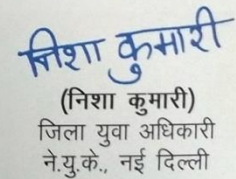 निशा कुमारी
(निशा कुमारी)
जिला युवा अधिकारी
ने.यु.के., नई दिल्ली